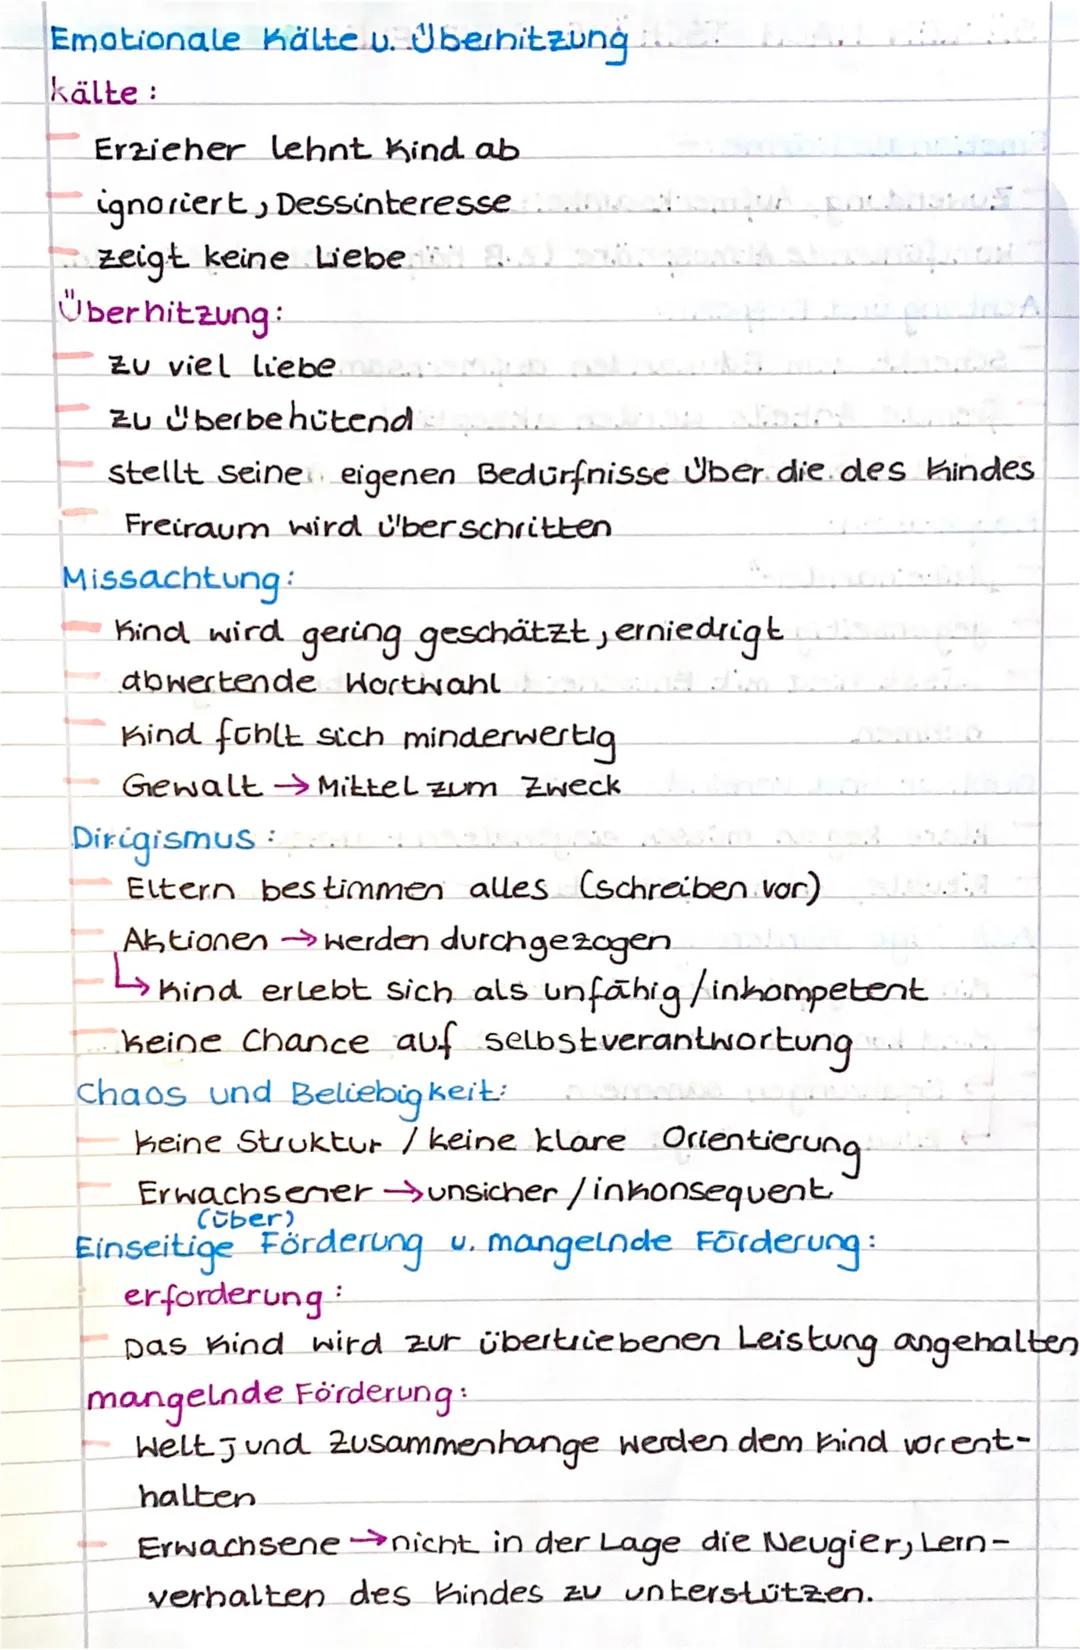 Emotionale Kälte u. Überhitzung
kälte:
- Erzieher lehnt Kind ab
- ignoriert, Dessinteresse
- zeigt keine Liebe
Überhitzung:
- zu viel liebe
- zu überbehütend
- stellt seine eigenen Bedürfnisse über die des Kindes
- Freiraum wird überschritten
Missachtung:
- Kind wird gering geschätzt, erniedrigt
- abwertende Wortwahl
- Kind fühlt sich minderwertig
- Gewalt → Mittel zum Zweck
Dirigismus:
- Eltern bestimmen alles (schreiben vor)
- Aktionen → werden durchgezogen
- ↳ Kind erlebt sich als unfähig/inkompetent
- keine Chance auf selbstverantwortung
Chaos und Beliebigkeit:
- keine Struktur / keine klare Orientierung
- Erwachsener → unsicher / inkonsequent
(über)
Einseitige Förderung u. mangelnde Förderung:
erforderung:
- Das Kind wird zur übertriebenen Leistung angehalten
mangelnde Förderung:
- Welt und Zusammenhange werden dem Kind vorent-
halten
- Erwachsene → nicht in der Lage die Neugier, Lern-
verhalten des Kindes zu unterstützen.